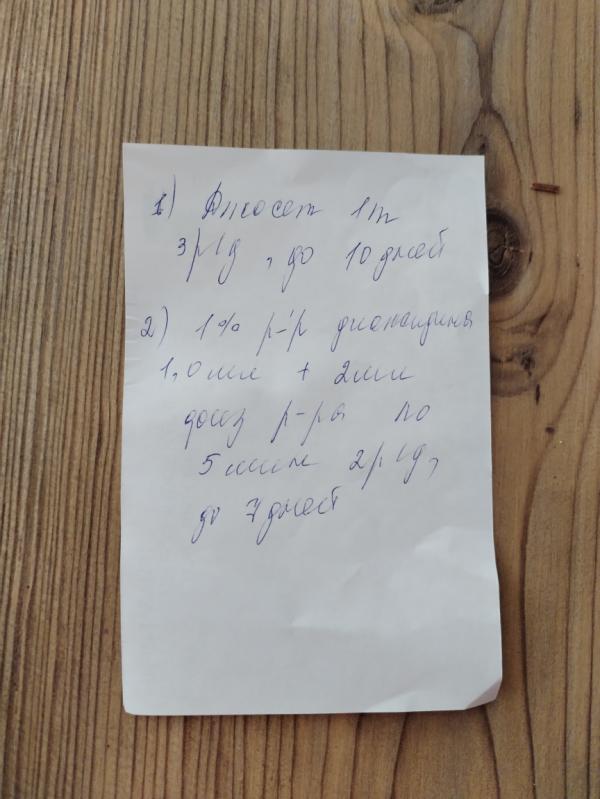 1) Джосет 1т
3р/д, до 10 дней
2) 1% р-р диоксидина
1,0 мл + 2 мл
физ р-ра по
5 мин 2р/д,
до 7 дней